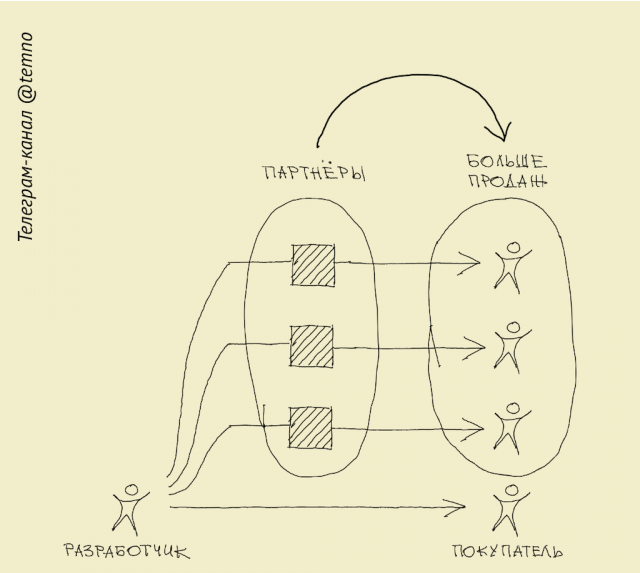 Телеграм-канал @temno
ПАРТНЁРЫ
БОЛЬШЕ
ПРОДАЖ
РАЗРАБОТЧИК
ПОКУПАТЕЛЬ